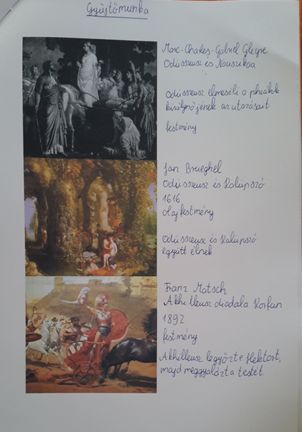 Gyűjtőmunka
Marc-Charles-Gabriel Gleyre
Odüsszeusz és Nauszikaa
Odüsszeusz elmeséli a phaiákok
királynőjének az utazásait
festmény
Jan Brueghel
Odüsszeusz és Kalüpszó
1616
olajfestmény
Odüsszeusz és Kalüpszó
együtt élnek
Franz Matsch
Akhilleusz diadala Korfun
1892
festmény
Akhilleusz legyőzte Hektórt,
majd meggyalázta testét.